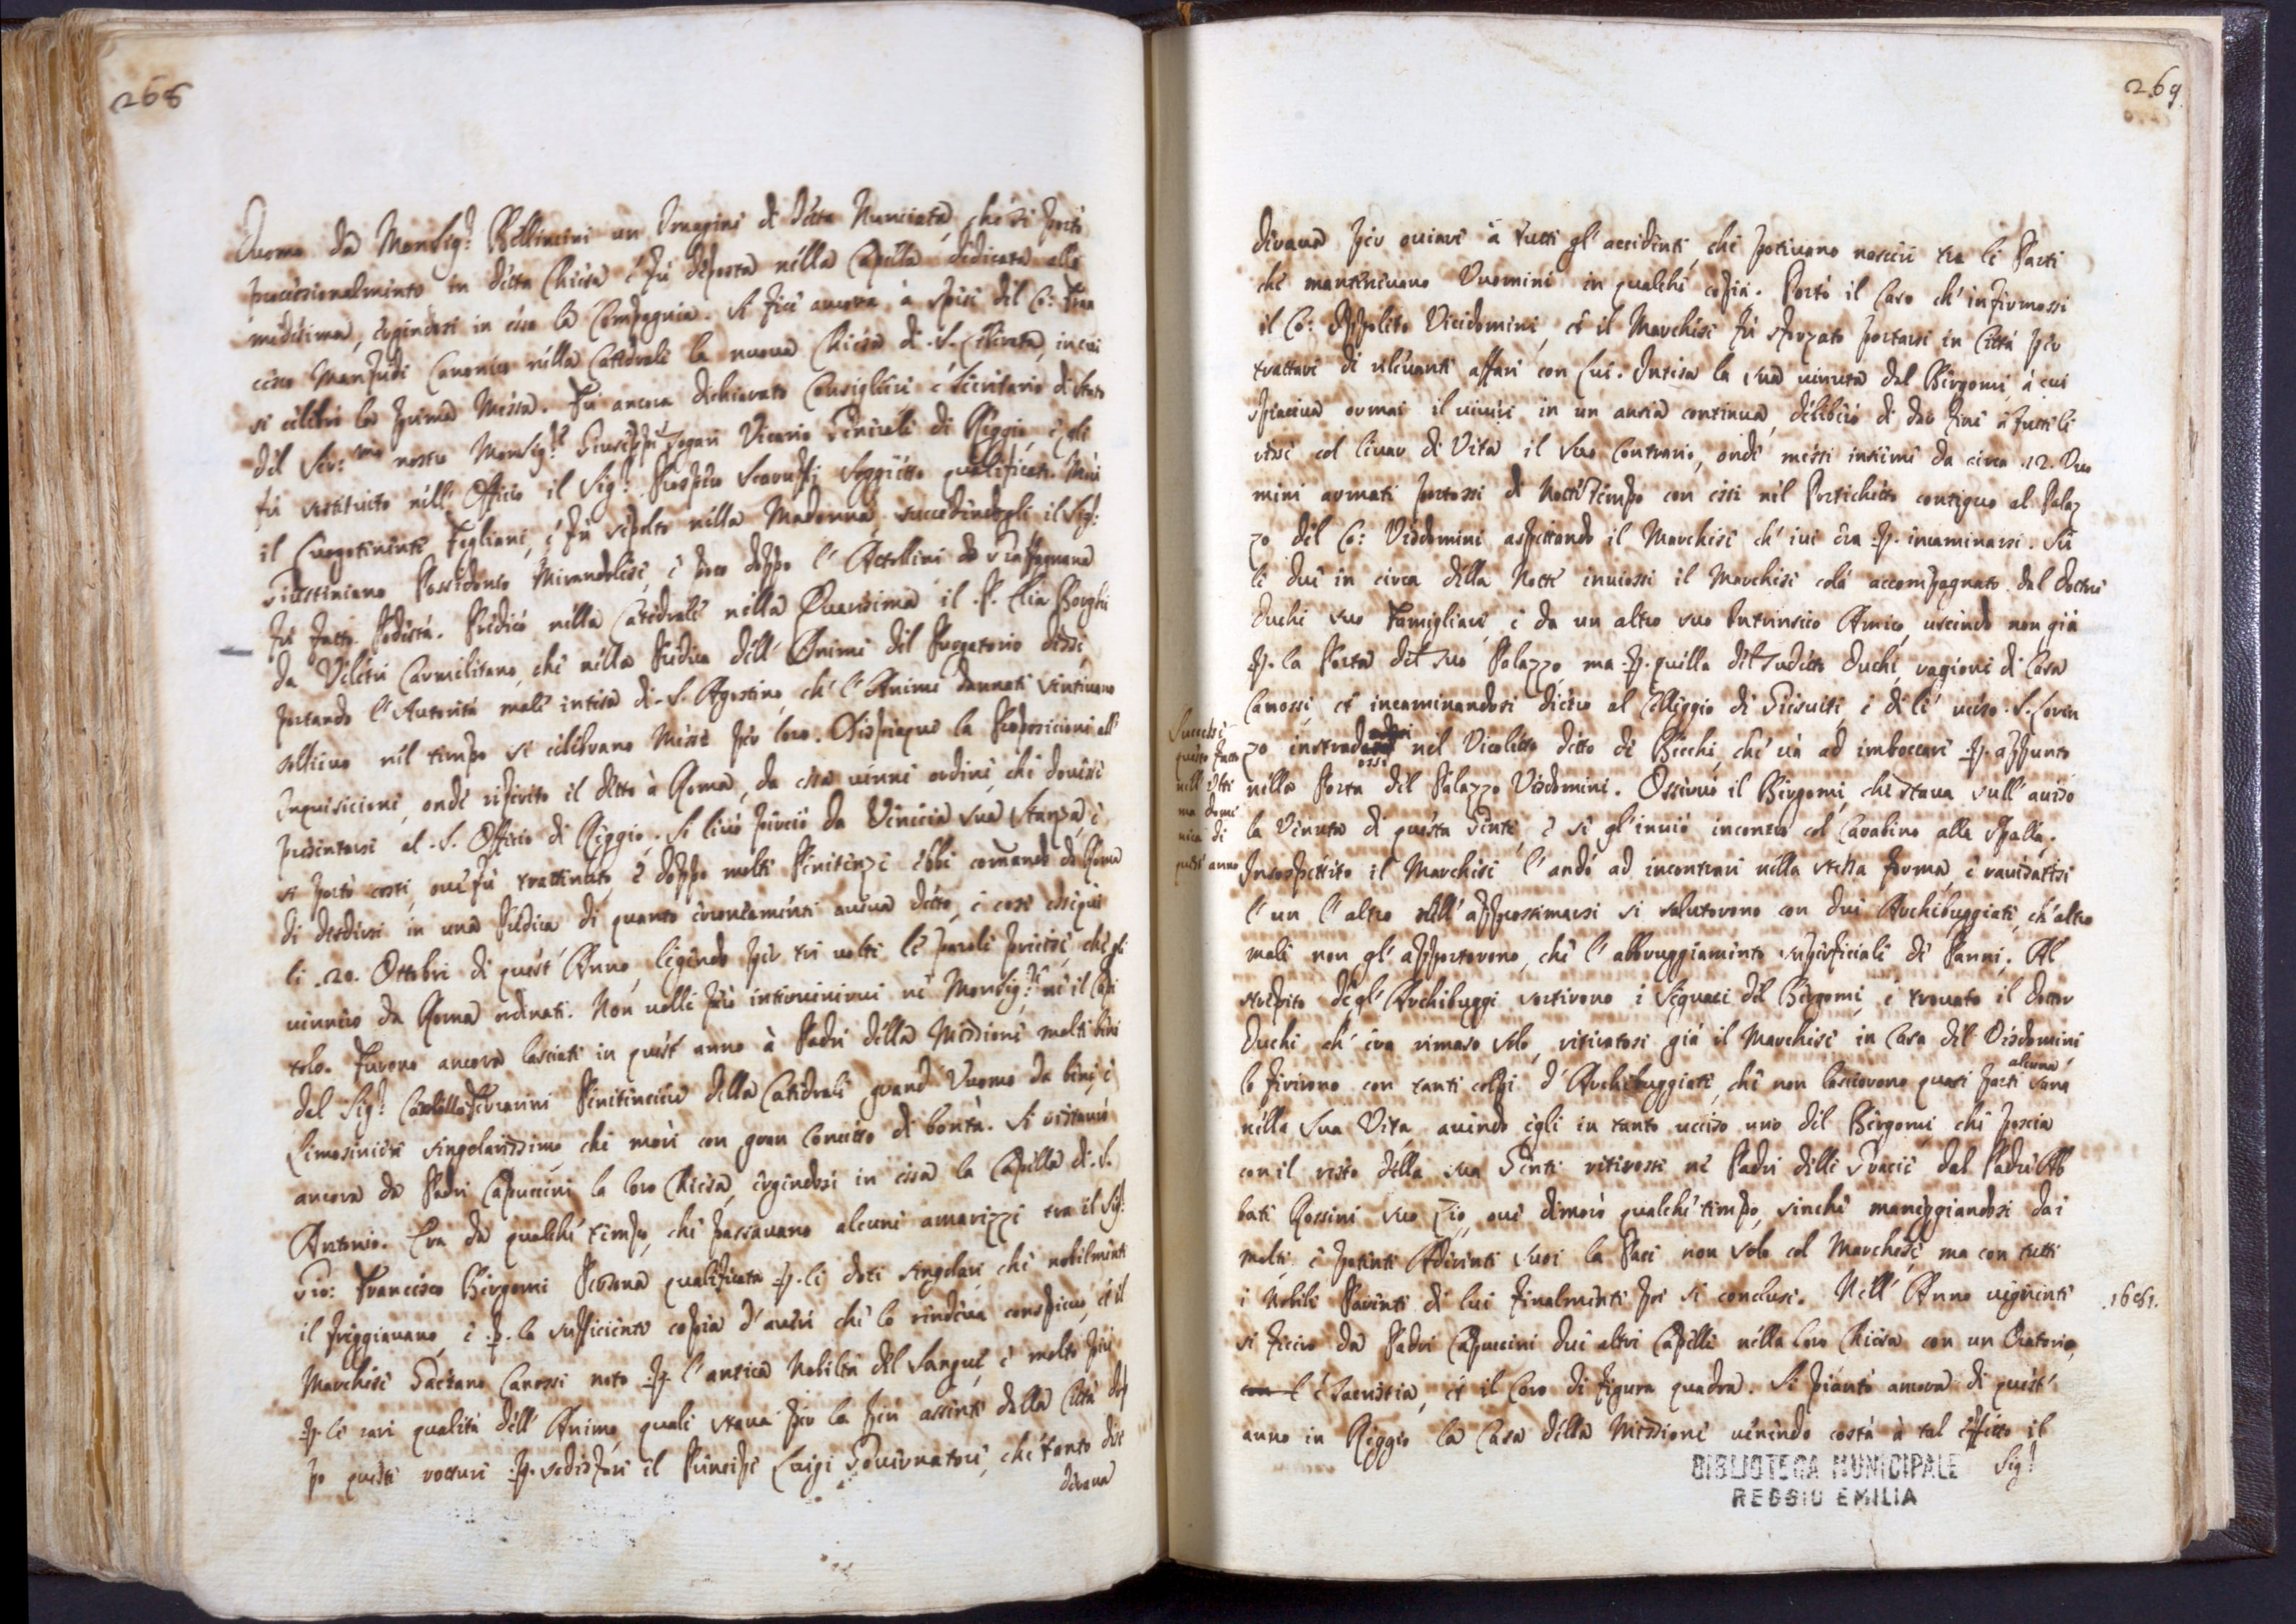 268
Duomo da Monsig.r Bellincini un Imagine di detta Nunciata, che si portò
processionalmente in detta Chiesa e fù deposta nella Capella dedicata alla
medesima, ergendosi in essa la Compagnia. Si fece ancora à spese del Co: Fran
cesco Manfredi Canonico nella Catedrale la nuova Chiesa di S. Liberata, in cui
si celebrò la prima Messa. Fù ancora dichiarato Consigliere e Secretario di Stato
del Ser:mo nostro Monsig.re Giuseppe Vicario Generale di Reggio, e gli
fù sostituito nell' Officio il Sig.r Prospero Scaruffi soggietto qualificato. Morì
il Luogotenente Fogliani, e fù sepolto nella Madonna, succedendogli il Sig.r
Giustiniano Possidonio Mirandolese, e poco doppo l' Attollini da Graffagnana
fù fatto Podestà. Predicò nella Catedrale nella Quaresima il P. Elia Borghi
da Veletri Carmelitano, che nella Predica dell' Anime del Purgatorio disse,
portando l'Autorità male intesa di S. Agostino, che l'Anime dannate sentivano
sollievo nel tempo si celebrano Messe per loro. Dispiaque la Proposicione all'
Inquisicione, onde riferito il detto à Roma, da essa venne ordine, che dovesse
presentarsi al S. Officio di Reggio. Si levò perciò da Venecia sua stanza, e
si portò costì, ove fù trattenuto, e doppo molte Penitenze ebbe comando da Roma
di disdirsi in una Predica di quanto erroneamente aveva detto, e così esseguì
li 20. Ottobre di quest' Anno, legendo per tre volte le parole precise, che gli
vennero da Roma ordinate. Non volle però intervenirvi nè Monsig.re nè il Capi
tolo. Furono ancora lasciati in quest' anno à Padri della Missione molti beni
dal Sig.r Ferrarini Penitenciere della Catedrale grand' Vuomo da bene, e
Limosiniere singolarissimo, che morì con gran concetto di bontà. Si ristaurò
ancora da Padri Capuccini la loro Chiesa, ergendosi in essa la Capella di S.
Antonio. Era da qualche tempo, che passavano alcune amarezze tra il Sig.r
Gio: Francesco Bergomi Persona qualificata p. le doti singolari, che nobilmente
il freggiavano, e p. la sufficiente copia d'averi che lo rendeva conspicuo, et il
Marchese Gaetano Canossi noto p. l'antica Nobiltà del Sangue, e molto più
p. le rare qualità dell' Animo, quale stava per lo più assente dalla Città dop
po queste rotture p. sodisfare il Principe Luigi Governatore, che tanto desi
derava
269
derava per oviare à tutti gl' accidenti, che potevano nascere tra le Parti
che mantenevano Vuomini in qualche copia. Portò il Caso ch' infermossi
il Co: Ippolito Vicedomini, et il Marchese fù sforzato portarsi in Città per
trattare di rilevanti affari con lui. Intesa la sua venuta dal Bergomi, à cui
spiaceva ormai il vivere in un ansia continua, deliberò di dar fine à tutte le
risse col levar di Vita il suo Contrario, onde messi insieme da circa 12. Vuo
mini armati portossi di Notte tempo con essi nel Portichetto contiguo al Palaz
zo del Co: Visdomini aspettando il Marchese ch' ivi era p. incaminarsi. Sù
le due in circa della Notte inviossi il Marchese colà accompagnato dal dottore
Duchi suo Famigliare, e da un altro suo Intrinsico Amico, uscendo non già
p. la Porta del suo Palazzo, ma p. quella del sudetto Duchi, ragione di Casa
Canossi, et incaminandosi dietro al Colleggio di Giesuiti, e di lì verso S. Loren
zo nel Vicoletto detto de Becchi, che và ad imboccare p. appunto
nella Porta del Palazzo Visdomini. Osservò il Bergomi, che stava sull' aviso
la Venuta di questa Gente, e se gl' inviò incontro col Carabino alla Spalla.
Insospettito il Marchese l'andò ad incontrare nella stessa forma, e ravisatisi
l'un l'altro nell' approssimarsi si salutorono con due Archibuggiate, ch'altro
male non gl' apportorono, che l'abbruggiamento superficiale de Panni. Al
strepito degl' Archibuggi sortirono i Seguaci del Bergomi, e trovato il dottor
Duchi ch' era rimaso solo, ritiratosi già il Marchese in Casa del Visdomini
lo ferirono con tanti colpi d' Archibuggiate, che non lasciorono quasi parte alcuna sana
nella sua Vita, avendo egli in tanto ucciso uno del Bergomi che poscia
con il resto della sua Gente ritirossi ne Padri delle Gracie dal Padre Ab
bate Rossini suo Zio, ove dimorò qualche tempo, sinche maneggiandosi da i
molti e potenti Aderenti suoi la Pace non solo col Marchese, ma con tutti
i Nobili Parenti di lui finalmente poi si concluse. Nell' Anno vegnente
si fecero da Padri Capuccini due altre Capelle nella loro Chiesa con un Oratorio,
e Sacristia, et il Coro di figura quadra. Si piantò ancora di quest'
anno in Reggio la Casa della Missione venendo costà à tal effetto il
Sig.r
Successe
questo fatto
nell' Ulti
ma Dome
nica di
quest' anno
BIBLIOTECA MUNICIPALE
REGGIO EMILIA